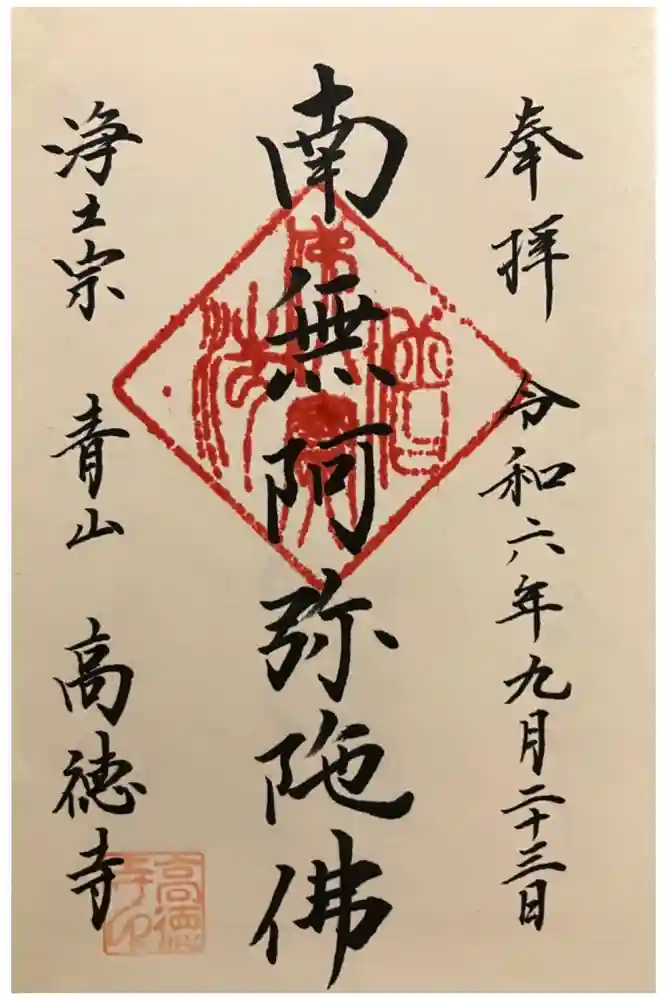 奉拝 令和六年九月二十三日
南無阿弥陀佛
浄土宗 青山 高徳寺
佛法僧寳
高徳寺印